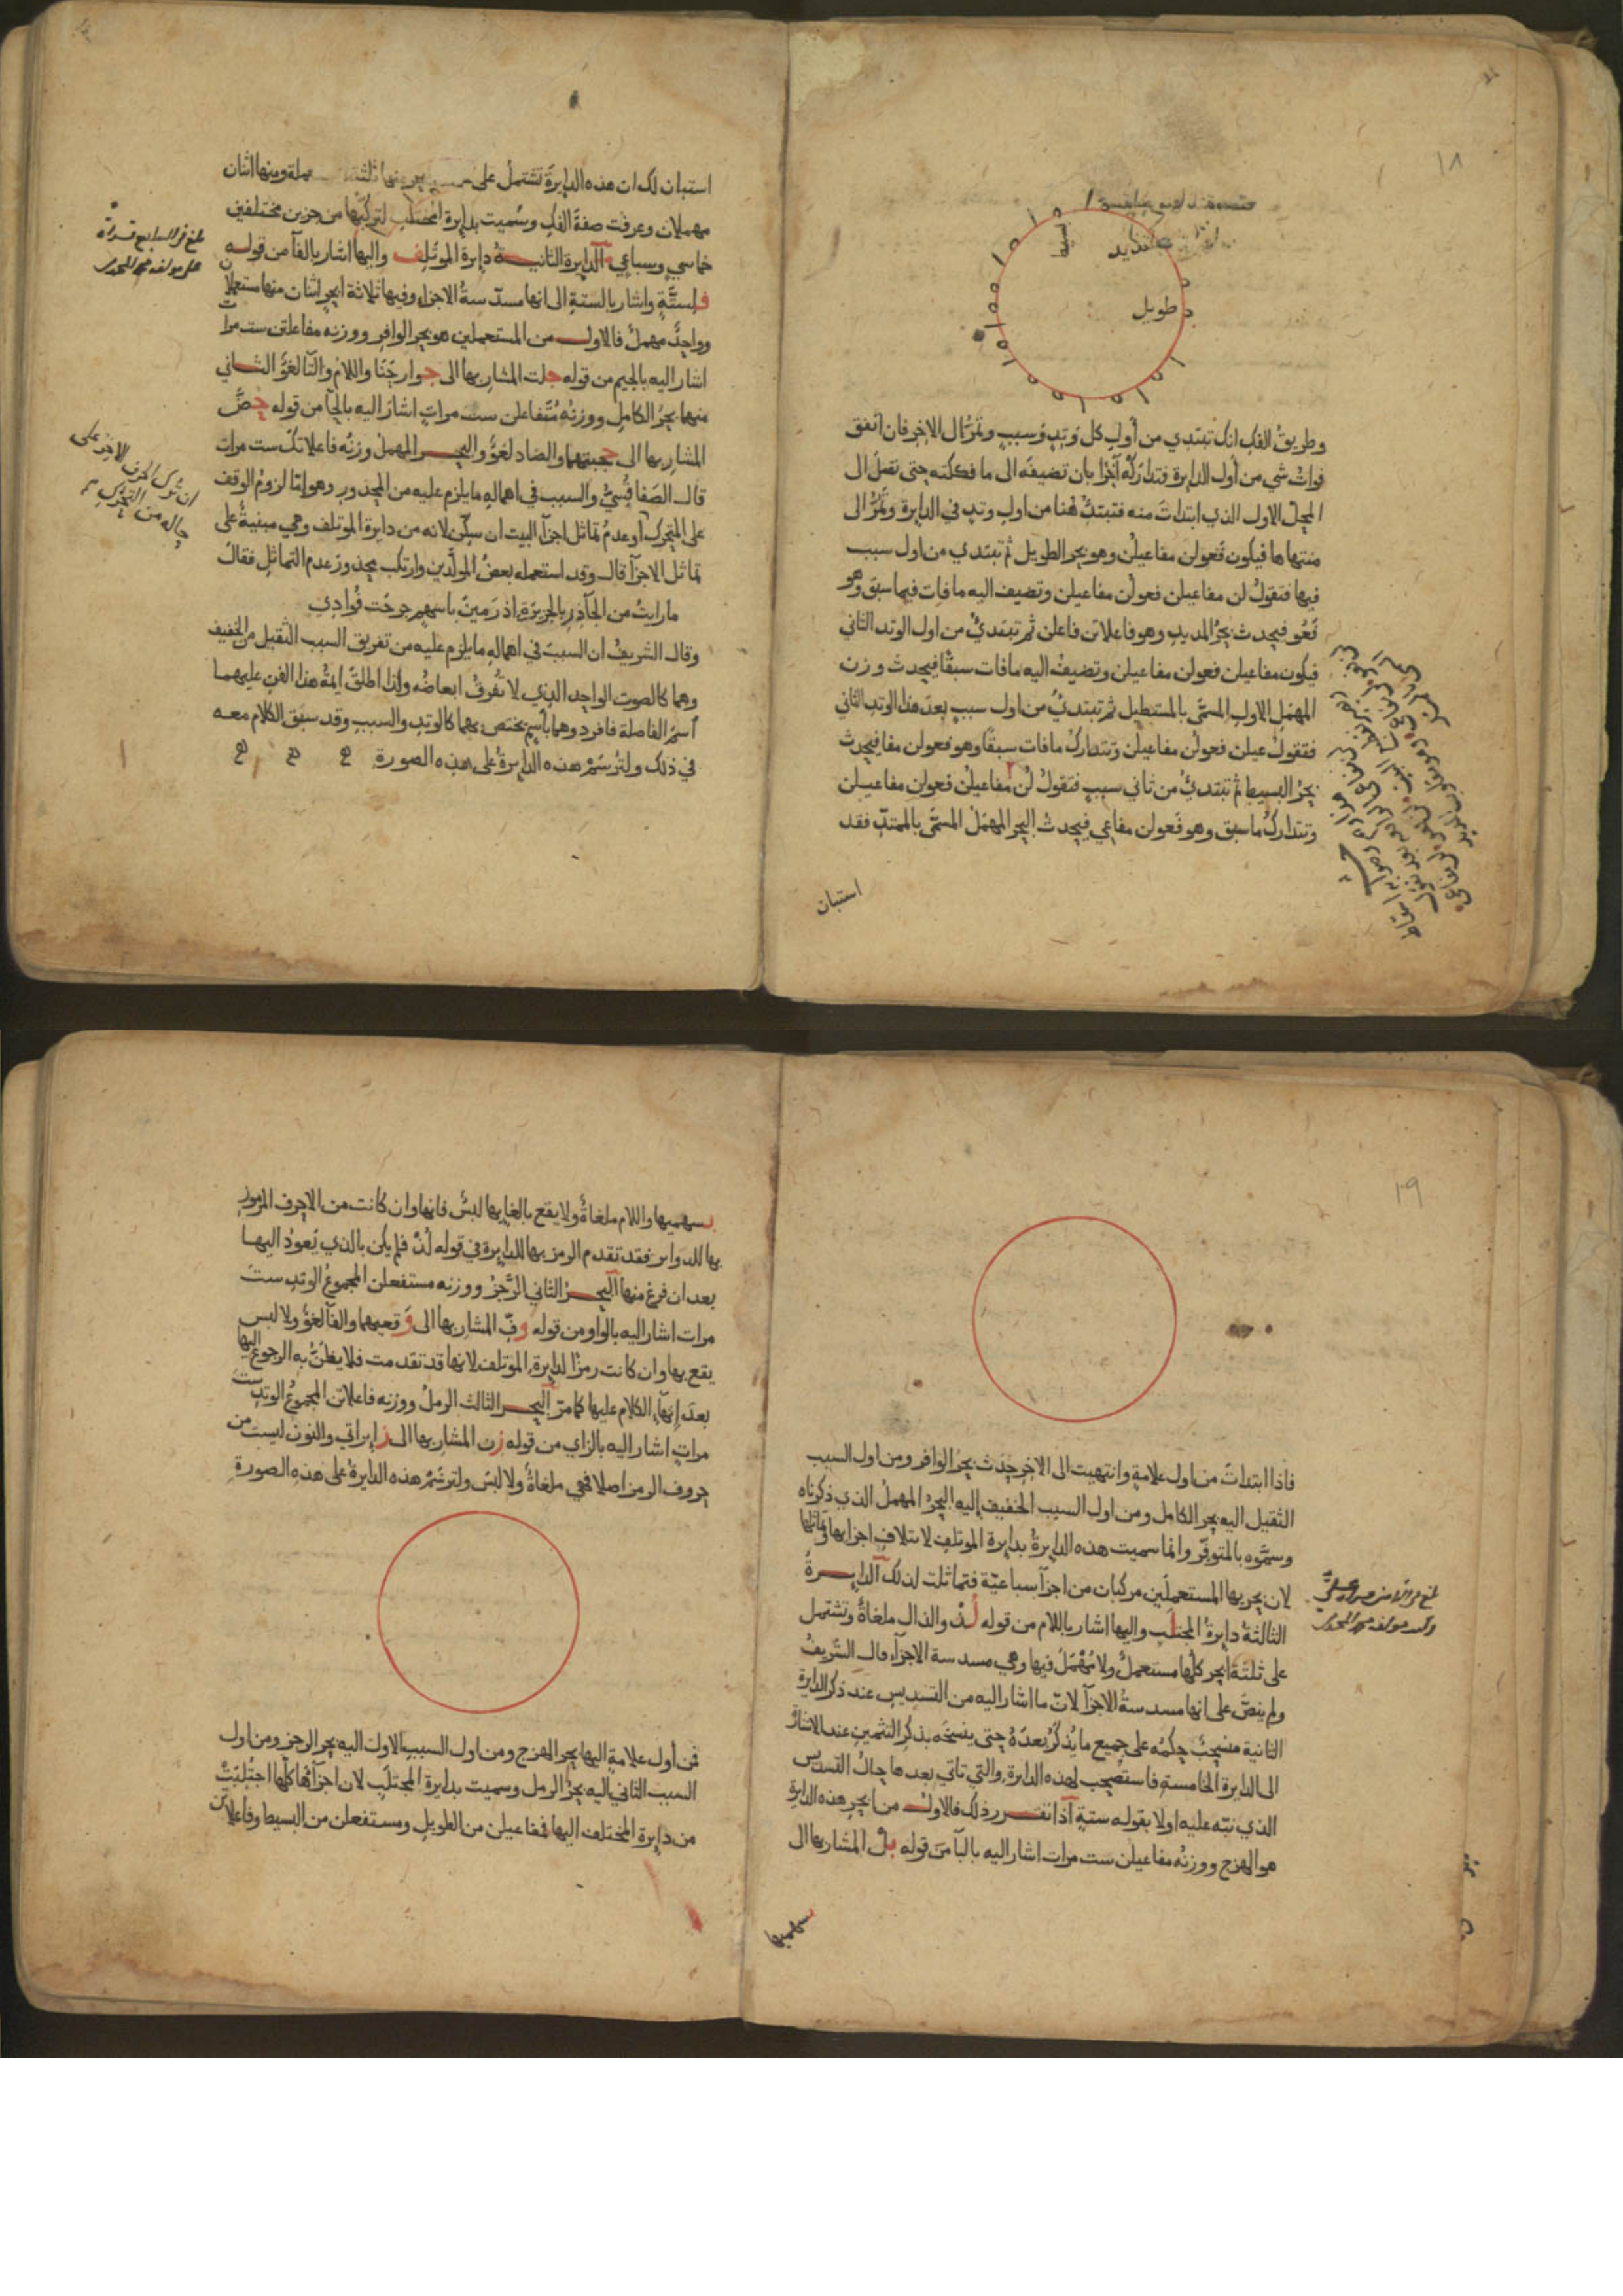 ١٨
طويل
وطريق الفك انك تبتدي من أول كل وَتِدٍ وَسببٍ وتمرُّ الى الاخر فان اتفق
فوات شي من أول الدايرة فتداركه آخرًا بان تضيفه الى ما فككته حتى تصل الى
المحل الاول الذي ابتدات منه فتبتدئ هنا من اول وتدٍ في الدايرة وتمُرُّ الى
منتهاها فيكون فعولن مفاعيلن وهو بحر الطويل ثم تبتدي من اول سبب
فيها فتقول لن مفاعيلن فعولن مفاعيلن وتضيف اليه ما فات فيما سبق وهو
فَعُو فيحدث بحرُ المديد وهو فاعلاتن فاعلن ثم تبتدئُ من اول الوتد الثاني
فيكون مفاعيلن فعولن مفاعيلن وتضيفُ اليه ما فات سبقًا فيحدث وزن
المهمل الاول المسمَّى بالمستطيل ثم تبتدئُ من اول سببٍ بعد هذا الوتد الثاني
فتقولُ عيلن فعولن مفاعيلن وتتداركُ ما فات سبقًا وهو فعولن مفا فيحدث
بحرُ البسيط ثم تبتدئُ من ثاني سببٍ فتقولُ لُن مفاعيلن فعولن مفاعيلن
وتتداركُ ما سبق وهو فعولن مفاعي فيحدث البحر المهمل المسمَّى بالممتدِّ فقد
استبان
استبان لك ان هذه الدايرةَ تشتملُ على منها ثلثة ومنها اثنان
مهملان وعرفت صفةَ الفكِ وسُميت بدايرة المختلف لتركّبها من جزين مختلفين
خماسي وسباعي الدايرة الثانية دايرة الموتَلِف واليها اشار بالفآ من قوله
فلستَّةٍ واشار بالستةِ الى انها مسدّسةُ الاجزاء وفيها ثلاثة ابحرٍ اثنان منها مستعملان
وواحدٌ مهملٌ فالاول من المستعملين هو بحر الوافر ووزنه مفاعلتن ست مرات
اشار اليه بالجيم من قوله جلت المشار بها الى جوارحنا واللامُ والتآ لغوٌ الثاني
منها بحرُ الكاملِ ووزنُه مُتَفاعلن ست مراتٍ اشار اليه بالحآ من قوله حضَّ
المشار بها الى والضاد لغوٌ والبحر المهمل وزنُه فاعلاتكَ ست مرات
قال الصَفاقُسِيُّ والسبب في اهماله ما يلزم عليه من المحذور وهو إمّا لزومُ الوقف
على المتحرك أو عدمُ تماثل اجزآ البيت ان سكّن لانه من دايرة الموتلف وهي مبنيةٌ على
تماثل الاجزآ قال وقد استعمله بعضُ المولَّدين وارتكب محذور عدم التماثل فقال
ما رايتُ من الجآذرِ بالجزيرةِ اذ رَمينَ باسهمٍ جرحَت فُوادِي
وقال الشريفُ ان السببَ في اهمالهِ ما يلزم عليه من تفريق السبب الثقيل من الخفيف
وهما كالصوت الواحد الذي لا تُفرقُ ابعاضُه ولذا اطلقَ ايمةُ هذا الفن عليهما
اسمَ الفاصلة فافردوهما باسم يختص بهما كالوتدِ والسببِ وقد سبق الكلام معه
في ذلك ولترسُمْ هذه الدايرةُ على هذه الصورة
١٩
فاذا ابتداتَ من اول علامةٍ وانتهيت الى الاخر حدث بحرُ الوافر ومن اول السبب
الثقيل اليه بحر الكامل ومن اول السبب الخفيف إليه البحرُ المهملُ الذي ذكرناه
وسمَّوه بالمتوفّر وانما سميت هذه الدايرةُ بدايرة الموتلف لايتلافِ اجزايها وتماثلها
لان بحريها المستعملَين مركبان من اجزآ سباعيَّة فتماثلت لذلك الدايرةُ
الثالثةُ دايرةُ المجتلَب واليها اشار باللام من قوله لذ والذال ملغاةٌ وتشتمل
على ثلثَة ابحرٍ كلُّها مستعملٌ ولا مُهْمَلَ فيها وهي مسدسة الاجزآ قال الشريفُ
ولم ينصَّ على انها مسدسةُ الاجزآ لانّ ما اشار اليه من التسديس عند ذكر الدايرة
الثانية منسحبٌ حكمُه على جميع ما يُذكَرُ بعدَهُ حتى ينسخَه بذكر التثمين عند الاشارة
الى الدايرة الخامسةِ فاستصحب لهذه الدايرةِ والتي تاتي بعدها حالُ التسديس
الذي نبّه عليه اولا بقوله ستةٍ اذا تقرر ذلك فالاول من ابحر هذه الدايرةِ
هو الهزج ووزنُه مفاعيلن ست مرات اشار اليه بالبآ من قوله بلْ المشار بها الى
بسهميها
بسهميها واللام ملغاةٌ ولا يقع بالغايها لبسٌ فانها وان كانت من الاحرف المرموز
بها للدواير فقد تقدم الرمز بها للدايرة في قوله لُذْ فلم يكن بالذي يَعودُ اليها
بعد ان فرغ منها البحرُ الثاني الرَّجزُ ووزنه مستفعلن المجموعُ الوتد ست
مرات اشار اليه بالواو من قوله وفِّ المشار بها الى وَقعيهما والفآ لغوٌ ولا لبس
يقع بها وان كانت رمزًا لدايرةِ الموتلف لانها قد تقدمت فلا يظنُّ به الرجوع اليها
بعدَ إنهآءِ الكلام عليها كما مرّ البحر الثالث الرملُ ووزنه فاعلاتن المجموعُ الوتد ست
مراتٍ اشار اليه بالزاي من قوله زن المشار بها الى والنون ليست من
حروف الرمز اصلا فهي ملغاةٌ ولا لبس ولترسَمْ هذه الدايرةُ على هذه الصورةِ
فمن أول علامةٍ اليها بحر الهزج ومن اول السبب الاول اليه بحر الرجز ومن اول
السبب الثاني اليه بحرُ الرمل وسميت بدايرة المجتلَبِ لان اجزآءَها كلَّها اجتُلِبَتْ
من دايرة المختلف اليها فمفاعيلن من الطويل ومستفعلن من البسيط وفاعلاتن